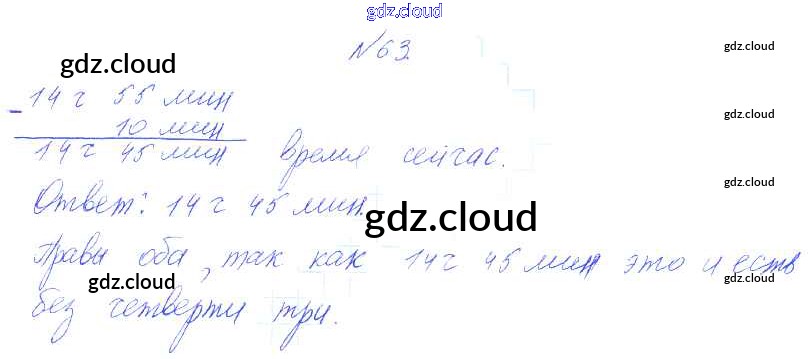 gdz.cloud
№63.
gdz.cloud
gdz.cloud
- 14 ч 55 мин
10 мин
gdz.cloud
14 ч 45 мин время сейчас.
Ответ: 14 ч 45 мин.
gdz.cloud
gdz.cloud
Правы оба, так как 14 ч 45 мин это и есть
gdz.cloud
gdz.cloud
без четверти три.